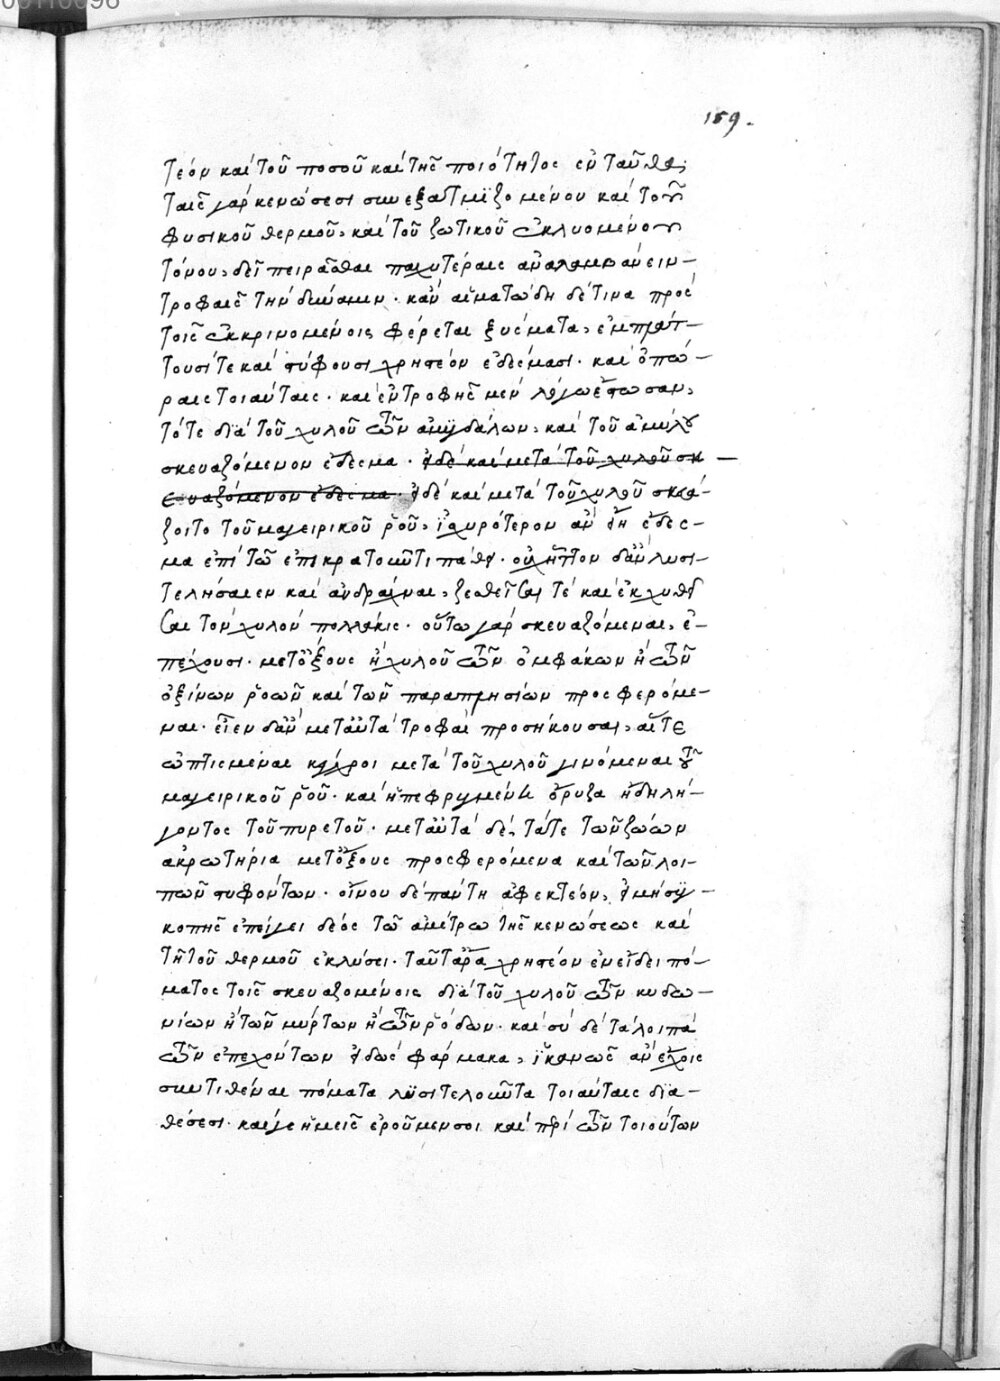 00110096
159.
τέον καὶ τοῦ ποσοῦ καὶ τῆς ποιότητος ἐνταῦθα,
ταῖς γὰρ κενώσεσι συνεξατμιζομένου καὶ τοῦ
φυσικοῦ θερμοῦ, καὶ τοῦ ζωτικοῦ ἐκλυομένου
τόνου, δεῖ πειρᾶσθαι παχυτέραις ἀναλαμβάνειν
τροφαῖς τὴν δύναμιν. κἂν αἱματώδη δέ τινα πρὸς
τοῖς ἐκκρινομένοις φέρεται ξύσματα, ἐμπλάτ-
τουσί τε καὶ στύφουσι χρηστέον ἐδέσμασι. καὶ ὀπώ-
ραις τοιαύταις. καὶ ἐν τροφῆς μὲν λόγῳ ἔστωσαν,
τό τε διὰ τοῦ χυλοῦ τῶν ἀμυγδάλων, καὶ τοῦ ἀμύλου
σκευαζόμενον ἔδεσμα. εἰ δὲ καὶ μετὰ τοῦ χυλοῦ σκ
ευαζόμενον ἔδεσμα. εἰ δὲ καὶ μετὰ τοῦ χυλοῦ σκευά-
ζοιτο τοῦ μαγειρικοῦ ῥοῦ, ἰσχυρότερον ἂν εἴη ἔδεσ-
μα ἐπὶ τῷ ἐπικρατοῦντι πάθει. οὐχ ἧττον δ' ἂν λυσι-
τελήσαιεν καὶ ἀνδράχναι, ζεσθεῖσαί τε καὶ ἐκχυθεῖ
σαι τὸν χυλὸν πολλάκις. οὕτω γὰρ σκευαζόμεναι, ἐ-
πέχουσι. μετ' ὄξους ἢ χυλοῦ τῶν ὀμφάκων ἢ τῶν
ὀξίνων ῥοῶν καὶ τῶν παραπλησίων προσφερόμε-
ναι. εἶεν δ' ἂν μετὰ ταῦτα τροφαὶ προσήκουσαι, αἵ τε
ὠπτισμέναι κέγχροι μετὰ τοῦ χυλοῦ γινόμεναι τοῦ
μαγειρικοῦ ῥοῦ. καὶ ἡ πεφρυγμένη ὄρυζα ἤδη λή-
γοντος τοῦ πυρετοῦ. μετὰ ταῦτα δὲ, τά τε τῶν ζώων
ἀκρωτήρια μετ' ὄξους προσφερόμενα καὶ τῶν λοι-
πῶν στυφόντων. οἴνου δὲ πάντη ἀφεκτέον, εἰ μὴ συγ-
κοπῆς ἐπείγει δέος τῷ ἀμέτρῳ τῆς κενώσεως καὶ
τῇ τοῦ θερμοῦ ἐκλύσει. ταῦτ' ἄρα χρηστέον ἐν εἴδει πό-
ματος τοῖς σκευαζομένοις διὰ τοῦ χυλοῦ τῶν κυδω-
νίων ἢ τῶν μύρτων ἢ τῶν ῥόδων. καὶ σὺ δὲ τὰ λοιπὰ
τῶν ἐπεχόντων εἰδὼς φάρμακα, ἱκανῶς ἂν ἔχοις
συντιθέναι πόματα λυσιτελοῦντα τοιαύταις δια-
θέσεσι. καίγε ἡμεῖς ἐροῦμεν σοι καὶ περὶ τῶν τοιούτων